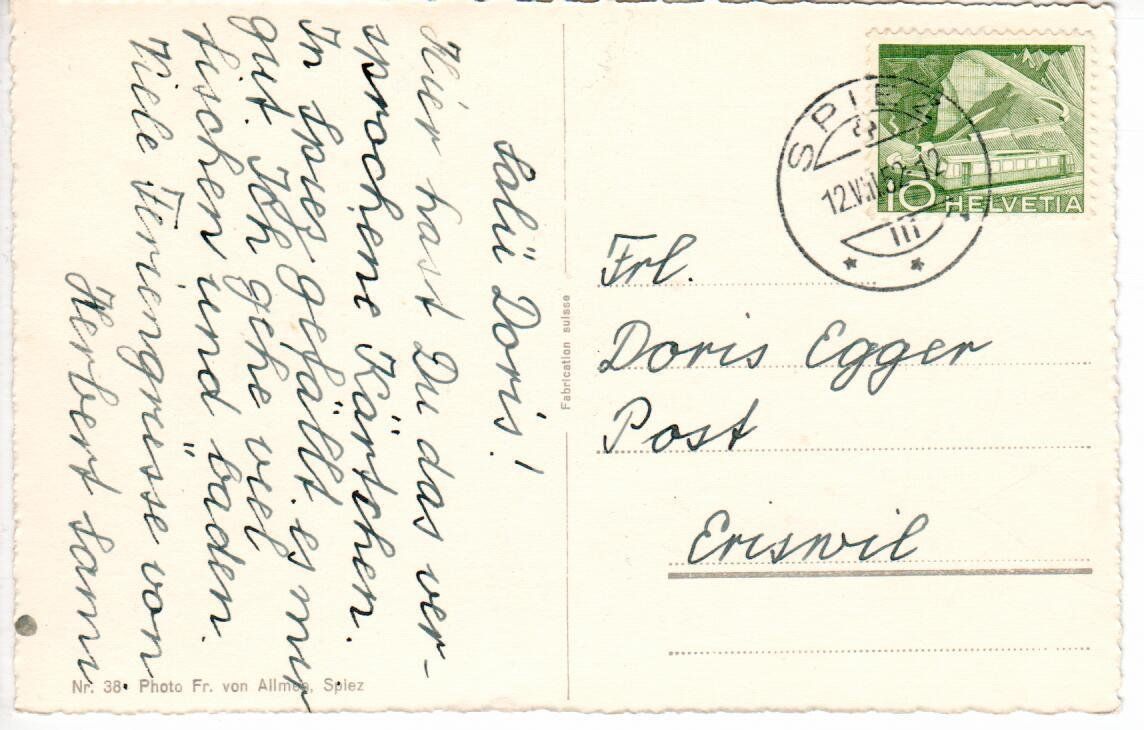 Salü Doris!
Hier hast Du das ver-
sprochene Kärtchen.
In Spiez gefällt es mir
gut. Ich gehe viel
fischen und baden.
Viele Feriengrüsse von
Herbert
Nr. 38 Photo Fr. von Allmen, Spiez
Fabrication suisse
SPIEZ
12.VIII.52-12
III
10 HELVETIA
Frl.
Doris Egger
Post
Eriswil